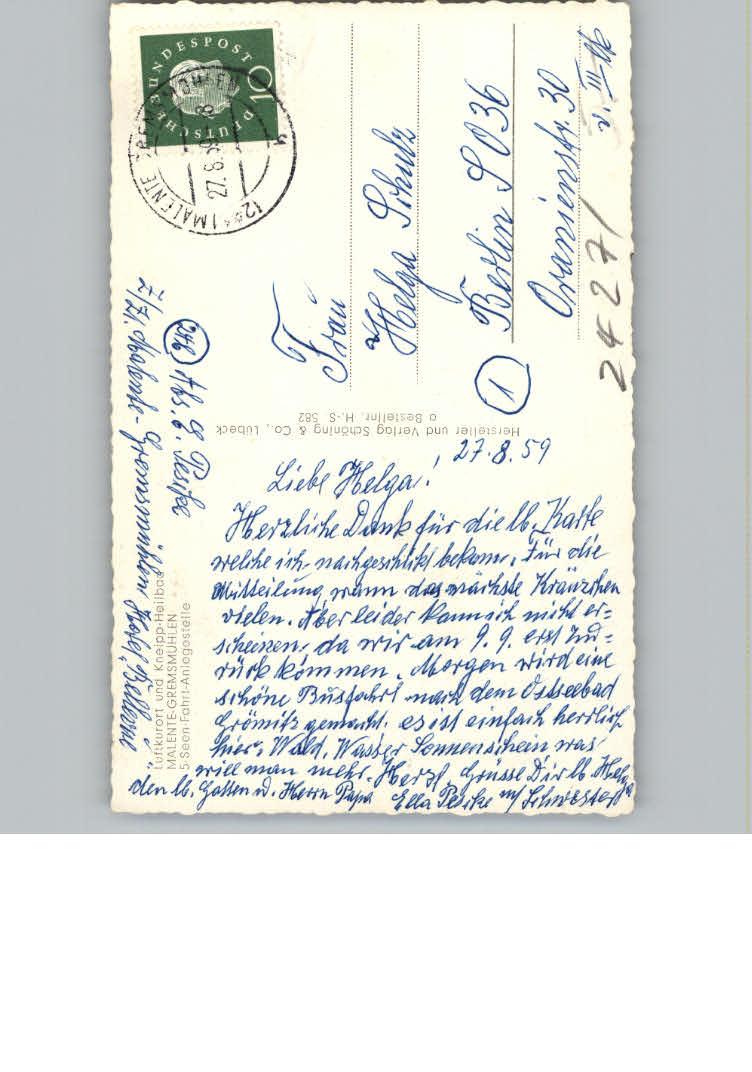 DEUTSCHE BUNDESPOST
10
MALENTE-GREMSMÜHLEN
27.8.59
Frau
Helga Schulz
1
Berlin SO 36
Oranienstr. 30
v. III
2427/
Abs. E. Peske
z/Zt. Malente-Gremsmühlen Hotel „Bellevue"
Hersteller und Verlag Schöning & Co., Lübeck
o Bestellnr. H.-S 582
Luftkurort und Kneipp-Heilbad
MALENTE-GREMSMÜHLEN
5-Seen-Fahrt-Anlegestelle
27.8.59
Liebe Helga!
Herzliche Dank für die lb. Karte
welche ich nachgeschickt bekam. Für die
Mitteilung wann das nächste Kränzchen
vielen. Aber leider kann ich nicht er-
scheinen, da wir am 9. 9. erst zu-
rück kommen. Morgen wird eine
schöne Busfahrt nach dem Ostseebad
Grömitz gemacht. es ist einfach herrlich
hier. Wald, Wasser Sonnenschein was
will man mehr. Herzl. Grüsse Dir lb. Helga
den lb. Gatten u. Herrn Papa Ella m/ Schwester